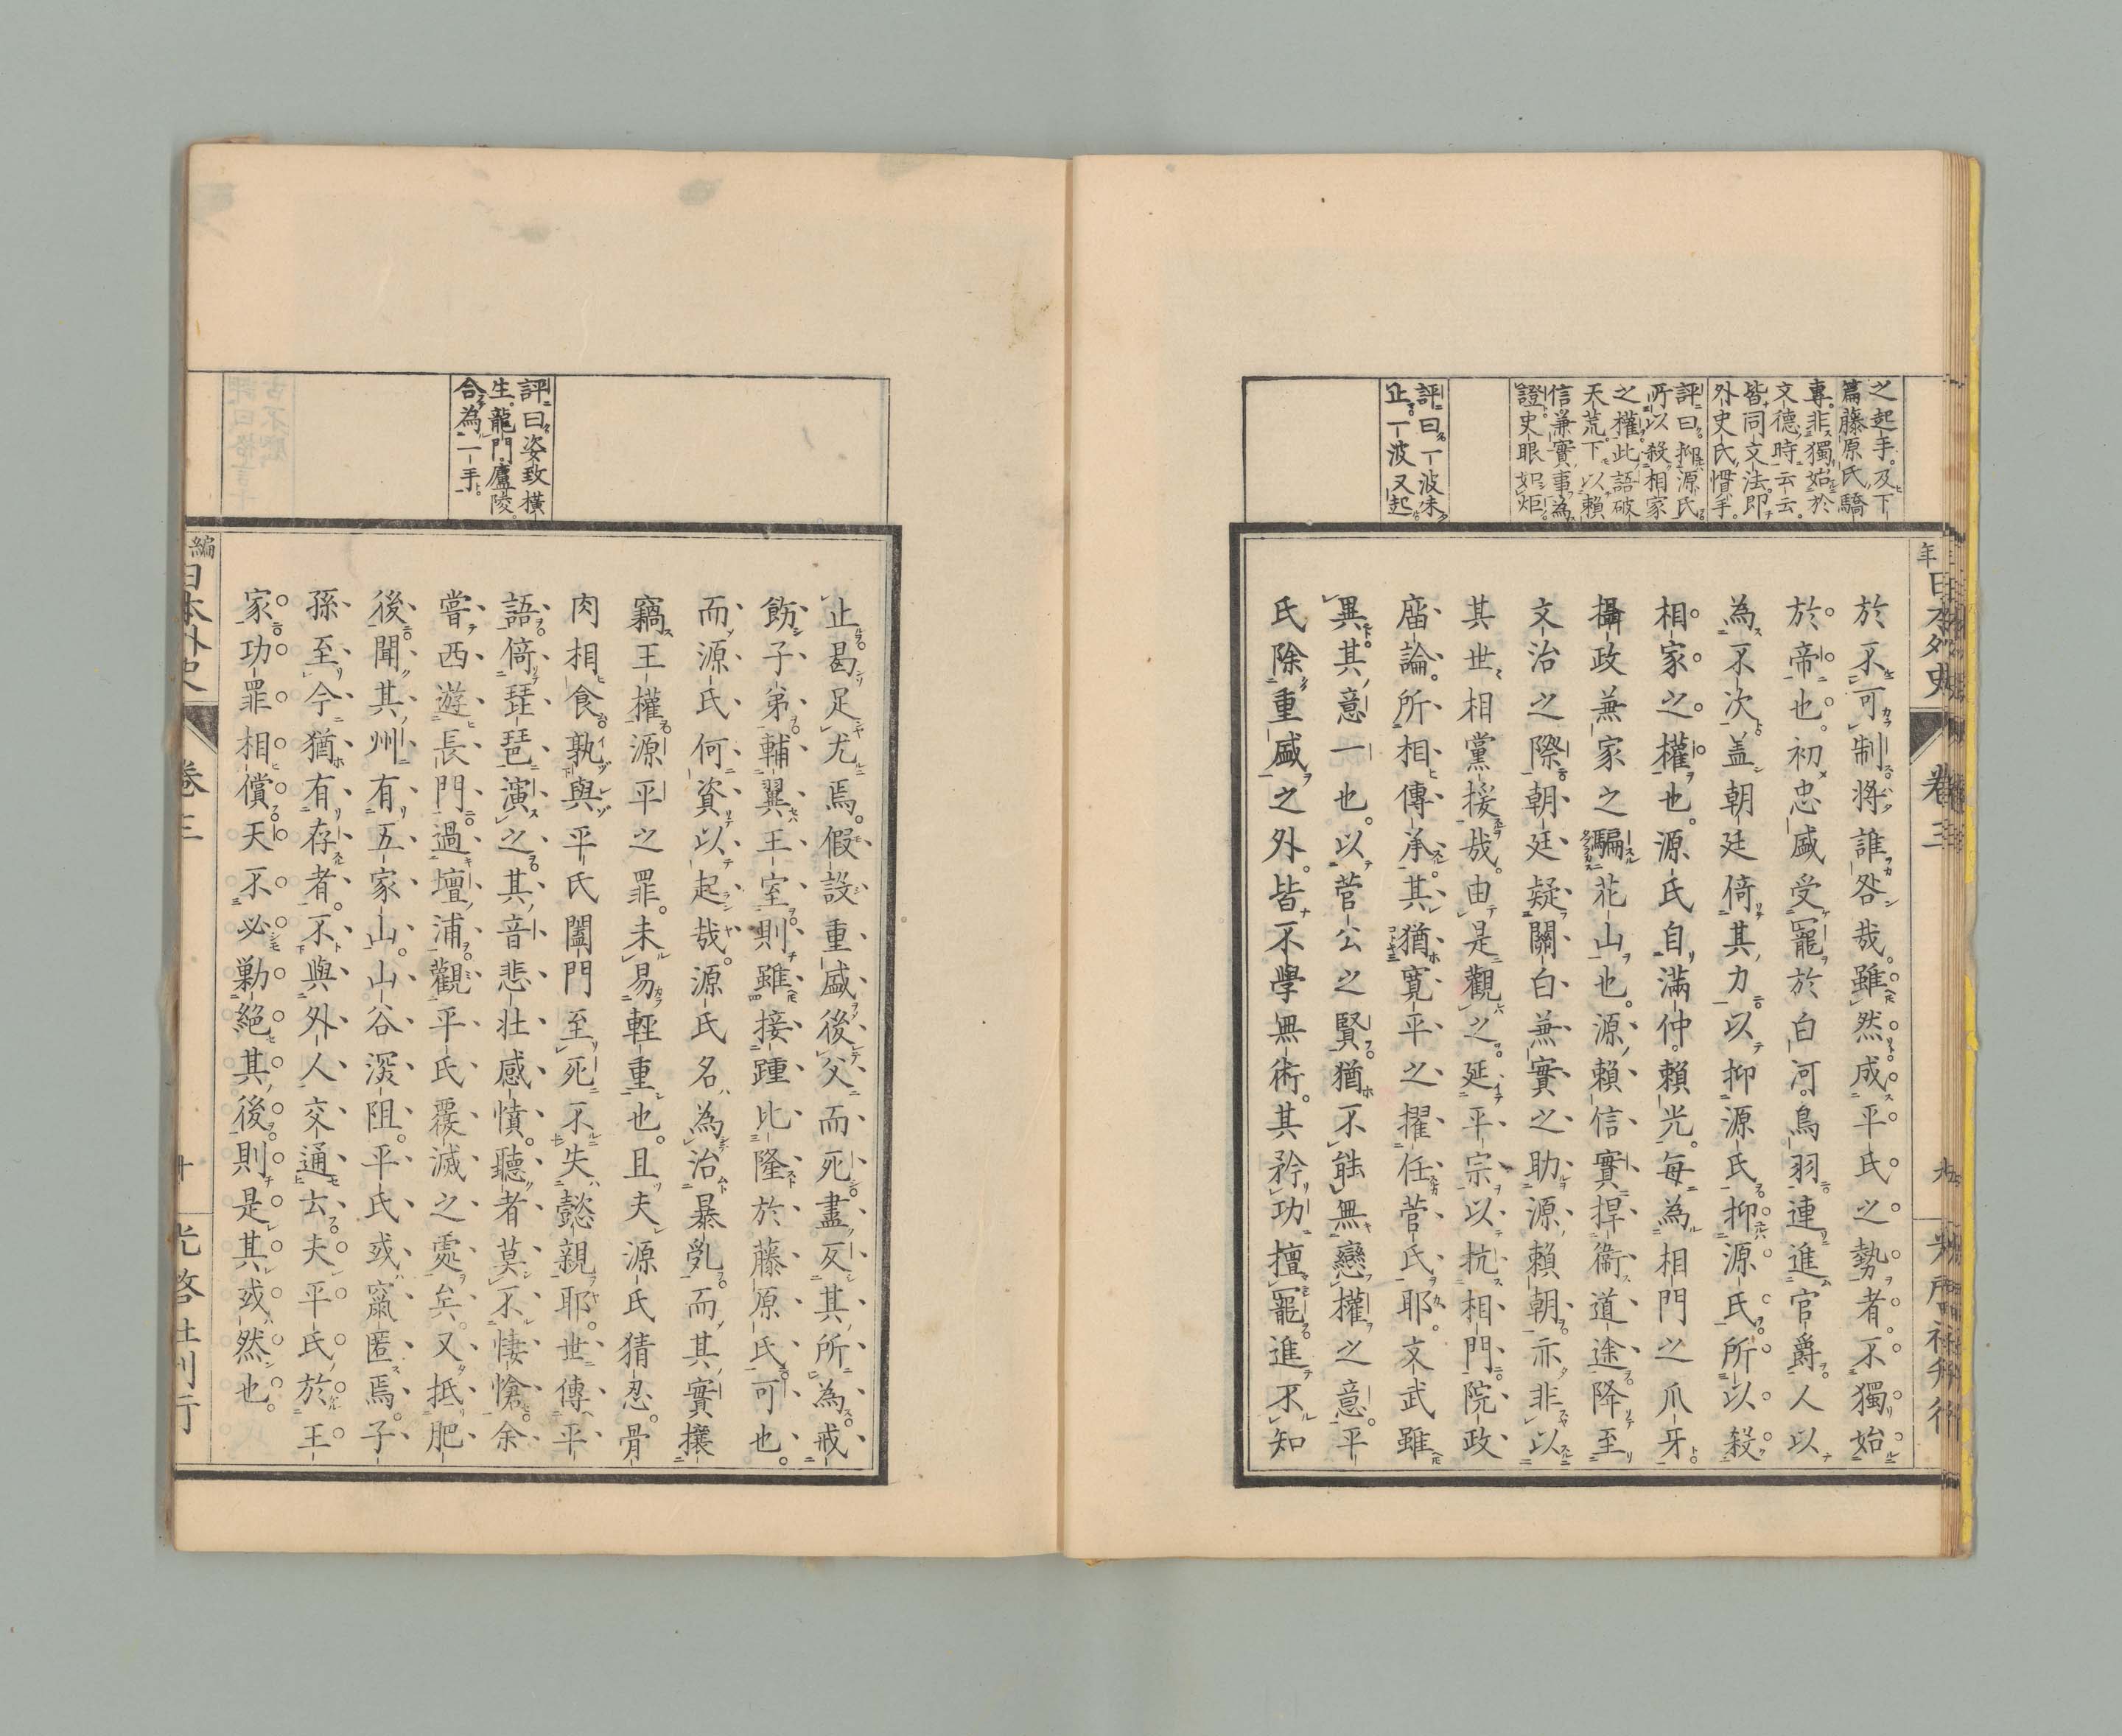 之起手。及下
篇藤原氏驕
專。非獨始於
文德時云云。
皆同文法。即
外史氏慣手。
評曰。抑源氏
所以殺相家
之權。此語破
天荒。下以賴
信兼實事為
證。史眼如炬。
評曰。一波未
止。一波又起。
於不可制。將誰咎哉。雖然成平氏之勢者。不獨始
於帝也。初忠盛受寵於白河。鳥羽。連進官爵。人以
為不次。蓋朝廷倚其力以抑源氏。抑源氏。所以殺
相家之權也。源氏自滿仲。賴光。每為相門之爪牙。
攝政兼家之騙花山也。源賴信實捍衛道途。降至
文治之際。朝廷疑關白兼實之助源賴朝。亦非以
其世相黨援哉。由是觀之。延平宗以抗相門。院政
庿論。所相傳承。其猶寬平之擢任菅氏耶。文武雖
異。其意一也。以菅公之賢。猶不能無戀權之意。平
氏除重盛之外。皆不學無術。其矜功擅寵。進不知
卷三
評曰。姿致橫
生。龍門廬陵。
合為一手。
止曷足尤焉。假設重盛後父而死。盡反其所為。戒
飭子弟。輔翼王室。則雖接踵比隆於藤原氏可也。
而源氏何資以起哉。源氏名為治暴亂。而其實攘
竊王權。源平之罪。未易輕重也。且夫源氏猜忍。骨
肉相食。孰與平氏闔門至死不失懿親耶。世傳平
語。倚琵琶演之。其音悲壯感憤。聽者莫不悽愴。余
嘗西遊長門。過壇浦。觀平氏覆滅之處矣。又抵肥
後。聞其州有五家山。山谷深阻。平氏或竄匿焉。子
孫至今猶有存者。不與外人交通云。夫平氏於王
家。功罪相償。天不必勦絕其後。則是其或然也。
日本外史
卷三
十
光啓社刊行